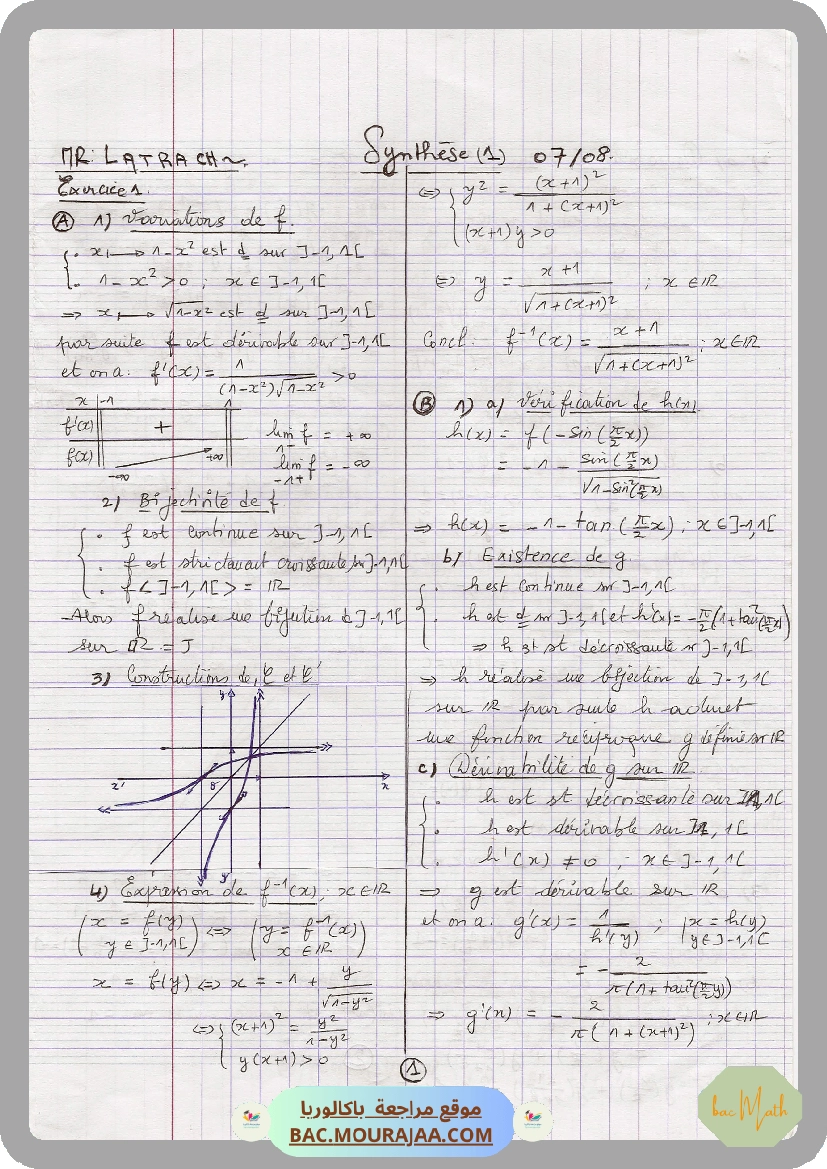 MR: LATRACH
Synthèse (1) 07/08.
Exercice 1.
(A) 1) Variations de f.
{ . x ⟼ 1-x² est d sur ]-1,1[
. 1-x² > 0 ; x ∈ ]-1,1[
⇒ x ⟼ √(1-x²) est d sur ]-1,1[
par suite f est dérivable sur ]-1,1[
et on a: f'(x) = 1/((1-x²)√(1-x²)) > 0
x | -1 1
f'(x) | +
f(x) | -∞ +∞
lim f = +∞
1-
lim f = -∞
-1+
2) Bijectivité de f
{ . f est continue sur ]-1,1[
. f est strictement croissante sur ]-1,1[
. f<]-1,1[> = IR
-Alors f réalise une bijection de ]-1,1[
sur IR = J
3) Constructions de ζ et ζ'
y
x' o x
y'
4) Expression de f⁻¹(x); x ∈ IR
(x = f(y) y ∈ ]-1,1[) ⇔ (y = f⁻¹(x) x ∈ IR)
x = f(y) ⇔ x = -1 + y/√(1-y²)
⇔ { (x+1)² = y²/(1-y²)
y(x+1) > 0
⇔ { y² = (x+1)²/(1+(x+1)²)
(x+1)y > 0
⇔ y = (x+1)/√(1+(x+1)²) ; x ∈ IR
Concl: f⁻¹(x) = (x+1)/√(1+(x+1)²) ; x ∈ IR
(B) 1) a) Vérification de h(x)
h(x) = f(-sin(π/2 x))
= -1 - sin(π/2 x)/√(1-sin²(π/2 x))
⇒ h(x) = -1 - tan(π/2 x) ; x ∈ ]-1,1[
b) Existence de g.
{ . h est continue sur ]-1,1[
. h est d sur ]-1,1[ et h'(x) = -π/2(1+tan²(π/2 x))
⇒ h est st décroissante sr ]-1,1[
⇒ h réalise une bijection de ]-1,1[
sur IR par suite h admet
une fonction réciproque g définie sr IR
c) Dérivabilité de g sur IR.
{ . h est st décroissante sur ]-1,1[
. h est dérivable sur ]-1,1[
. h'(x) ≠ 0 ; x ∈ ]-1,1[
⇒ g est dérivable sur IR
et on a: g'(x) = 1/h'(y) ; |x = h(y) y ∈ ]-1,1[
= - 2/(π(1+tan²(π/2 y)))
⇒ g'(x) = - 2/(π(1+(x+1)²)) ; x ∈ IR
1
موقع مراجعة باكالوريا
BAC.MOURAJAA.COM
bac Math